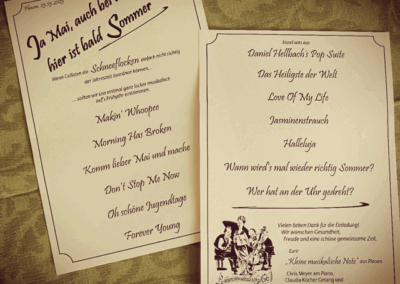 Plauen, 23.05.2015
Ja Mai, auch bei
hier ist bald Sommer
Wenn Cellisten die Schneeflocken einfach nicht richtig
der Jahreszeit zuordnen können...
... sollten wir uns erstmal ganz locker musikalisch
auf's Frühjahr einstimmen.
Makin' Whoopee
Morning Has Broken
Komm lieber Mai und mache
Don't Stop Me Now
Oh schöne Jugendtage
Forever Young
Daniel Hellbach's Pop Suite
Das Heiligste der Welt
Love Of My Life
Jasminenstrauch
Halleluja
Wann wird's mal wieder richtig Sommer?
Wer hat an der Uhr gedreht?
Vielen lieben Dank für die Einladung!
Wir wünschen Gesundheit,
Freude und eine schöne gemeinsame Zeit.
Eure
"Kleine musikalische Note" aus Plauen
Chris Meyer am Piano,
Claudia Köcher Gesang und